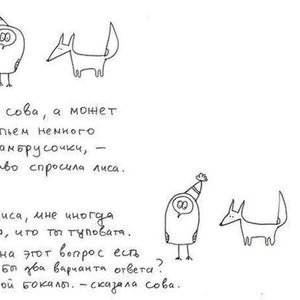 сова, а может
пьем немного
амбрусочки, –
во спросила лиса.
иса, мне иногда
о, что ты туповата.
на этот вопрос есть
бы два варианта ответа?
ой бокалы. – сказала сова.